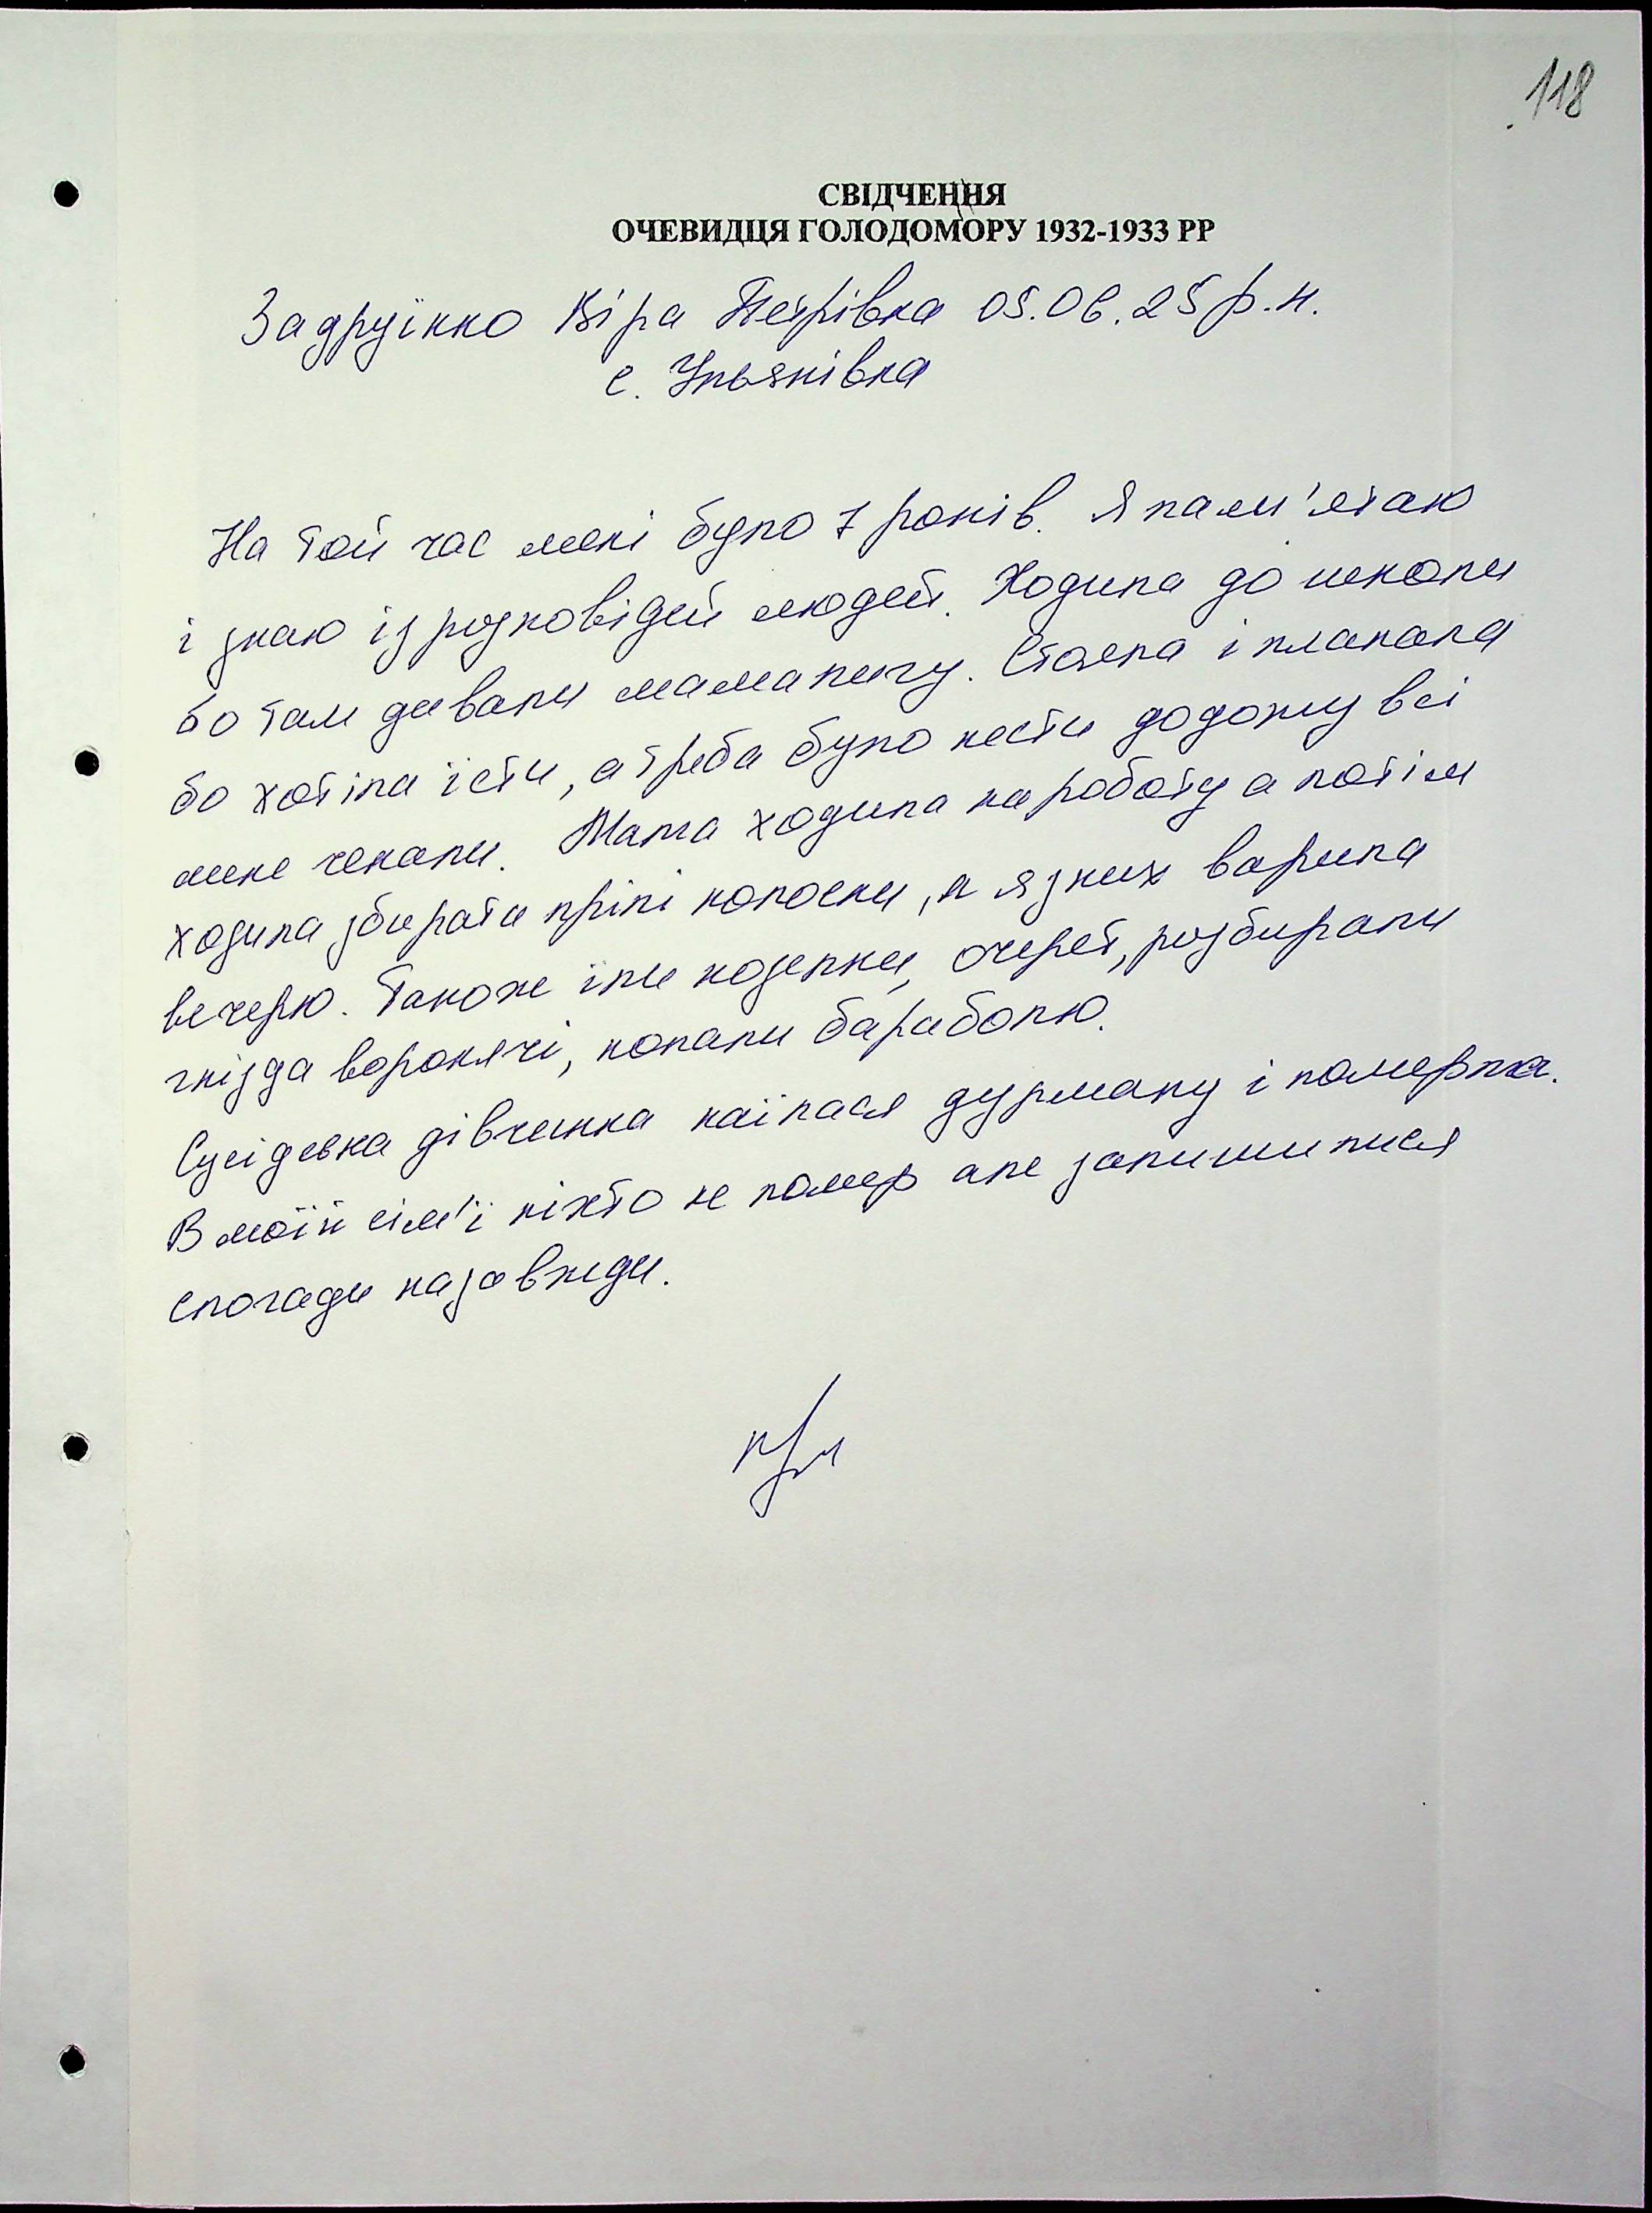 118
СВІДЧЕННЯ
ОЧЕВИДЦЯ ГОЛОДОМОРУ 1932-1933 РР
Віра Петрівна 05.06.25 р.н.
с. Ульянівка
На той час мені було 7 років. Я пам'ятаю
і знаю із розповідей людей. Ходила до школи
бо там давали мамалигу. Стояла і плакала
бо хотіла їсти, а треба було нести додому всі
мене чекали. Мама ходила на роботу а потім
ходила збирати прілі колоски, а я з них варила
вечерю. Також їли козельки, очерет, розбирали
гнізда воронячі, копали бараболю.
Сусідська дівчинка наїлася дурману і померла.
В моїй сім'ї ніхто не помер але залишилися
спогади назавжди.